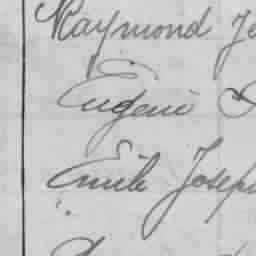 Raymond Je
Eugenie
Emile Joseph